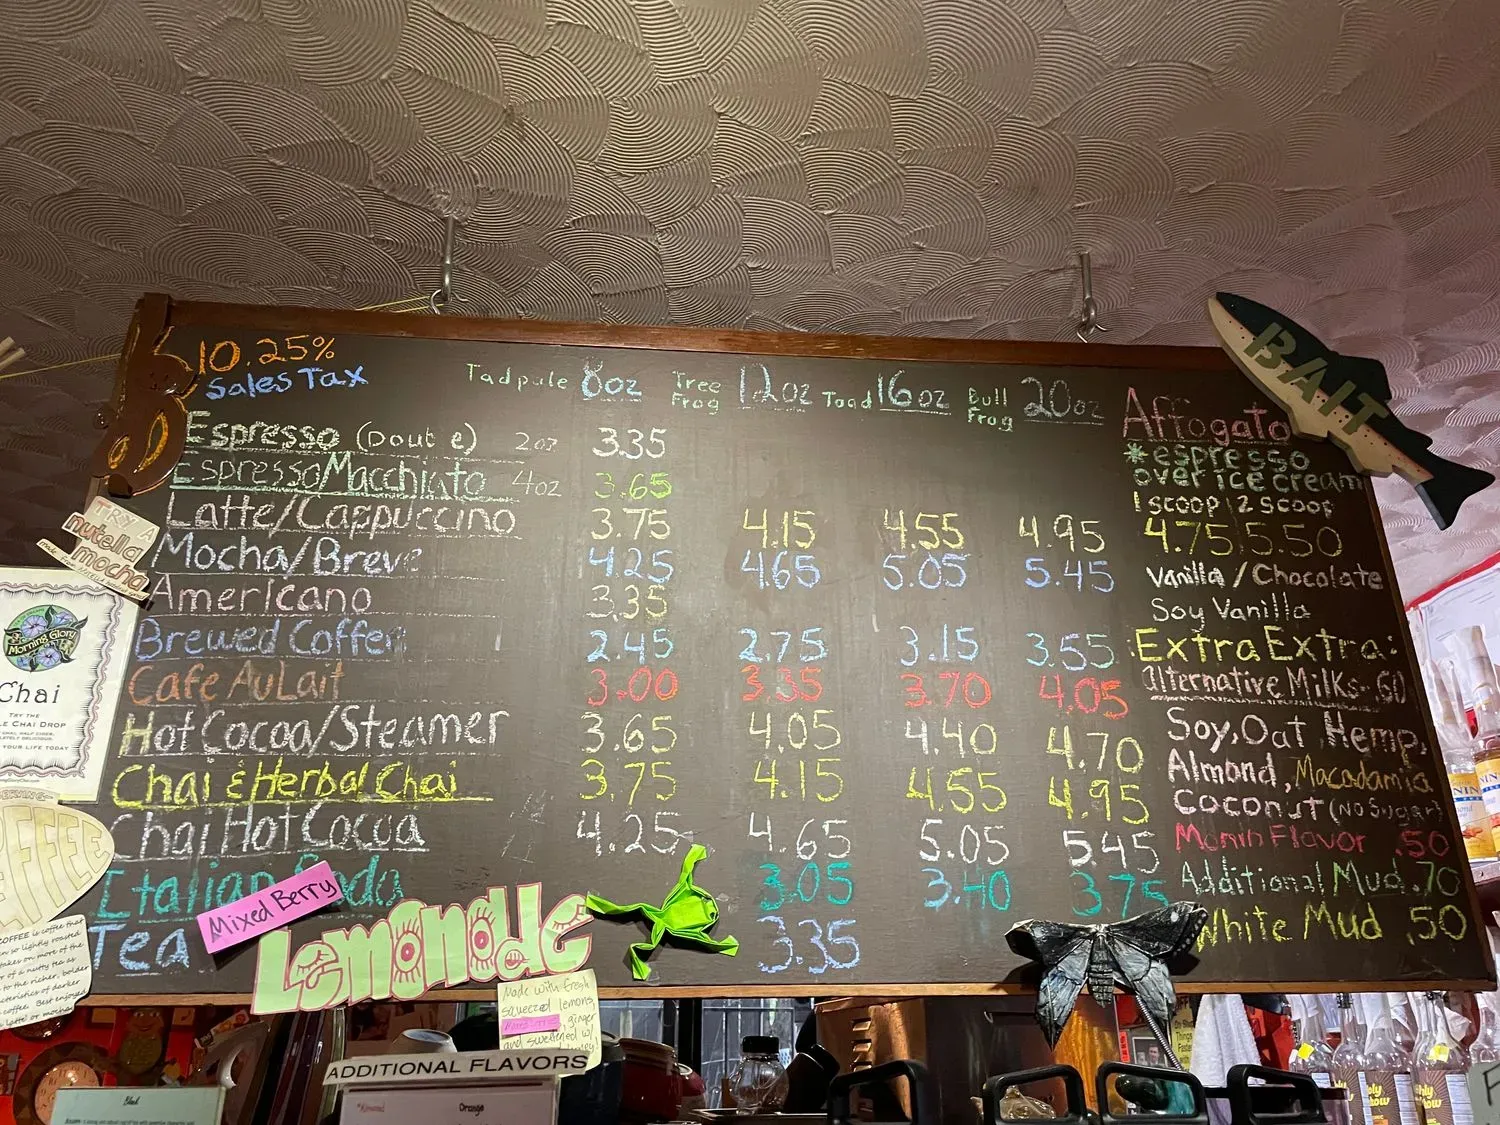 10.25%
Sales Tax
Tadpole 8oz Tree Frog 12oz Toad 16oz Bull Frog 20oz
Espresso (Double) 2oz 3.35
Espresso Macchiato 4oz 3.65
Latte/Cappuccino 3.75 4.15 4.55 4.95
Mocha/Breve 4.25 4.65 5.05 5.45
Americano 3.35
Brewed Coffee 2.45 2.75 3.15 3.55
Cafe AuLait 3.00 3.35 3.70 4.05
Hot Cocoa/Steamer 3.65 4.05 4.40 4.70
Chai & Herbal Chai 3.75 4.15 4.55 4.95
Chai Hot Cocoa 4.25 4.65 5.05 5.45
Italian Soda 3.05 3.40 3.75
Tea 3.35
Affogato
*espresso
over ice cream
1 scoop|2 scoop
4.75|5.50
Vanilla/Chocolate
Soy Vanilla
Extra Extra:
alternative Milks-60
Soy, Oat, Hemp,
Almond, Macadamia
Coconut (No Sugar)
Monin Flavor .50
Additional Mud .70
White Mud .50
BAIT
TRY A
nutella
mocha
Morning Glory
Chai
TRY THE
LE CHAI DROP
YOUR LIFE TODAY
Mixed Berry
Lemonade
Made with fresh
squeezed lemons,
ginger
and sweetened w/
ADDITIONAL FLAVORS
Almond
Orange
COFFEE is coffee that
so lightly roasted
takes on more of the
of a nutty tea as
to the richer, bolder
of darker
coffee. Best enjoyed
latte or mocha